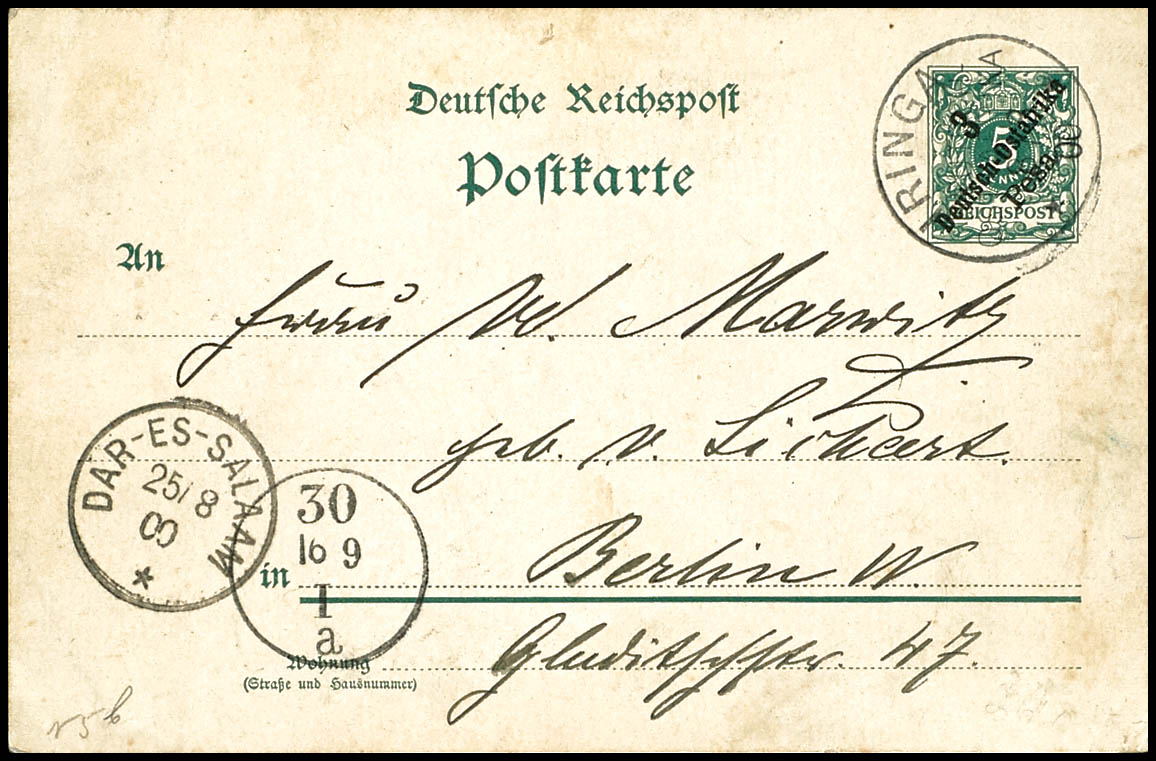 Deutsche Reichspost
Postkarte
RINGA
00
3
5
Deutsch-Ostafrika
Pesa
REICHSPOST
An
Frau M. Marwitz
geb. v. Sichert.
DAR-ES-SALAAM
25/8
00
30
16 9
1
a
in Berlin W.
Gleditschstr. 47.
Wohnung
(Straße und Hausnummer)